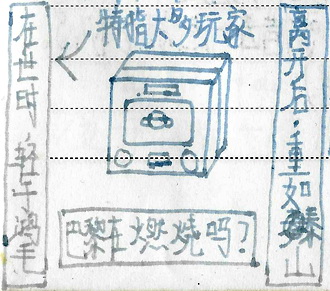 特指大多玩家
在世时,轻于鸿毛
离开后,重如泰山
巴黎在燃烧吗?